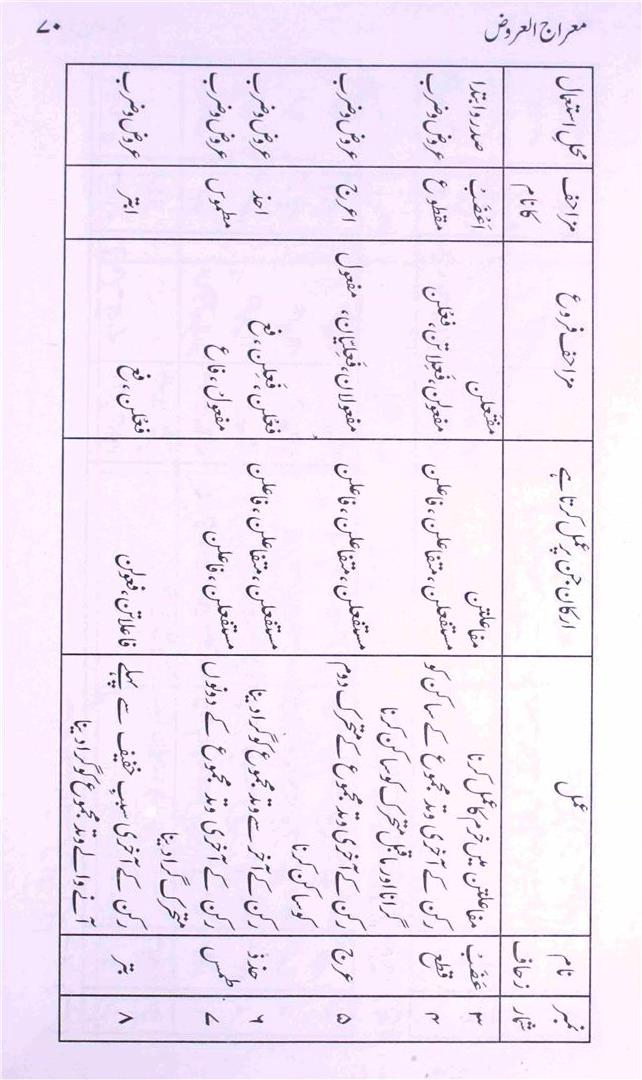 معراج العروض
۷۰
نمبر شمار | نام زحاف | عمل | ارکان جن پر عمل کرتا ہے | مزاحف فروع | مزاحف کا نام | محل استعمال
۳ | عَضَب | مفاعلتن میں خرم کا عمل کرنا | مفاعلتن | مفتعلن | اَعْضَبْ | صدر و ابتدا
۴ | قطع | رکن کے آخری وتد مجموع کے ساکن کو
گرانا اور ماقبل متحرک کو ساکن کرنا | مستفعلن، متفاعلن، فاعلن | مفعولن، فَعِلاتن، فعْلن | مقطوع | عروض و ضرب
۵ | عرج | رکن کے آخری وتد مجموع کے متحرک دوم
کو ساکن کرنا | مستفعلن، متفاعلن، فاعلن | مفعولان، فَعِلیَان، مفعول | اعرج | عروض و ضرب
۶ | حذذ | رکن کے آخر سے وتد مجموع کو گرا دینا | مستفعلن، متفاعلن، فاعلن | فعْلن، فَعِلن، فع | احذ | عروض و ضرب
۷ | طمس | رکن کے آخری وتد مجموع کے دونوں
متحرک گرا دینا | مستفعلن، فاعلن | مفعول، فاع | مطموس | عروض و ضرب
۸ | بتر | رکن کے آخری سبب خفیف سے پہلے
آنے والے وتد مجموع کو گرا دینا | فاعلاتن، فعولن | فعْلن، فع | ابتر | عروض و ضرب